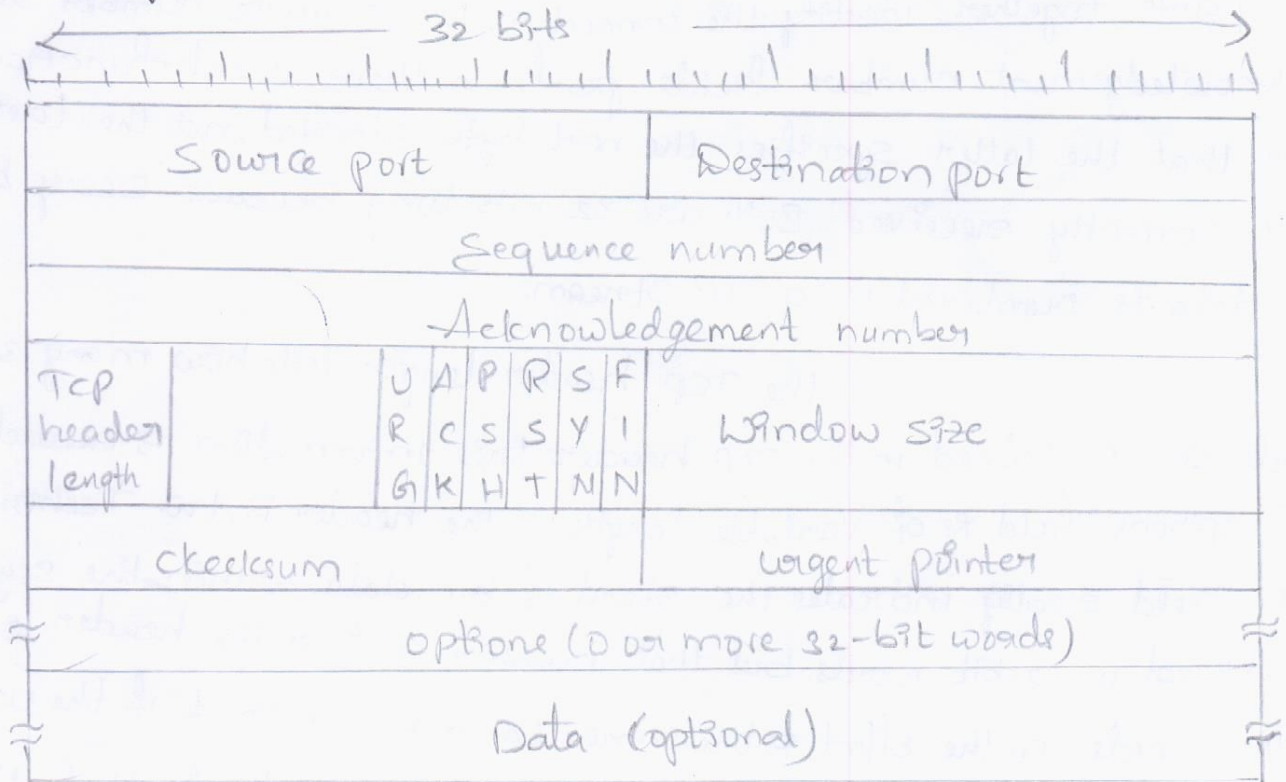 32 bits
Source port Destination port
Sequence number
Acknowledgement number
TCP header length URG ACK PSH RST SYN FIN Window size
Checksum urgent pointer
options (0 or more 32-bit words)
Data (optional)